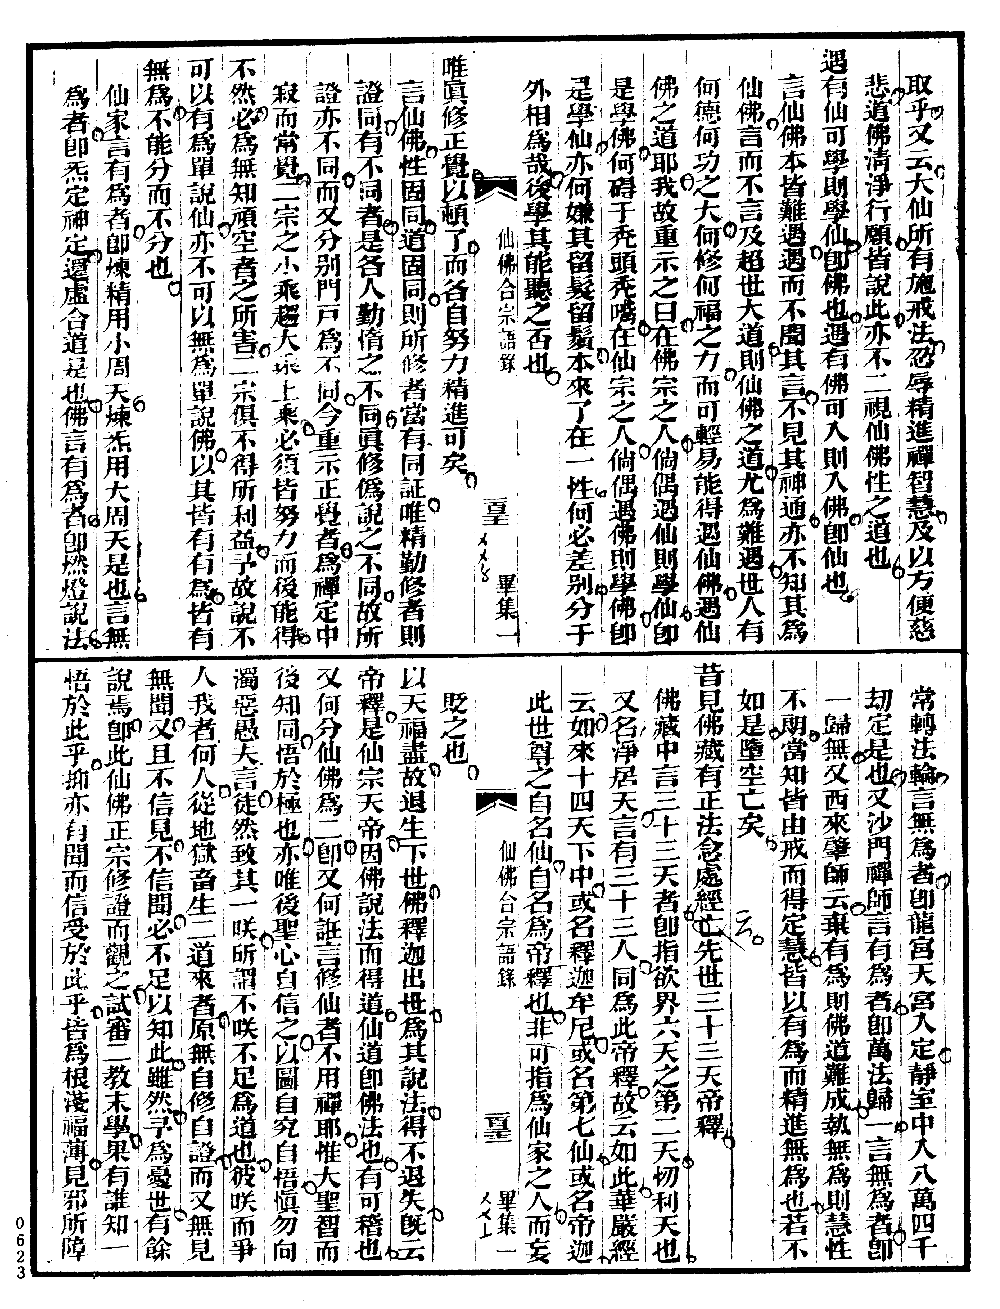 取乎又云大仙所有施戒法忍辱精進禪智慧及以方便慈
悲道佛清淨行願皆說此亦不二視仙佛性之道也
遇有仙可學則學仙卽佛也遇有佛可入則入佛卽仙也
言仙佛本皆難遇遇而不聞其言不見其神通亦不知其爲
仙佛言而不言及超世大道則仙佛之道尤爲難遇世人有
何德何功之大何修何福之力而可輕易能得遇仙佛遇仙
佛之道耶我故重示之曰在佛宗之人倘偶遇仙則學仙卽
是學佛何碍于禿頭禿嘴在仙宗之人倘偶遇佛則學佛卽
是學仙亦何嫌其留髮留鬚本來了在一性何必差別分于
外相爲哉後學其能聽之否也
仙佛合宗語錄
畢集一
唯眞修正覺以頓了而各自努力精進可矣
言仙佛性固同道固同則所修者當有同証唯精勤修者則
證同有不同者是各人勤惰之不同眞修僞說之不同故所
證亦不同而又分別門戸爲不同今重示正覺者爲禪定中
寂而常覺二宗之小乘趨大乘上乘必須皆努力而後能得
不然必爲無知頑空者之所害二宗俱不得所利益予故說不
可以有爲單說仙亦不可以無爲單說佛以其皆有有爲皆有
無爲不能分而不分也
仙家言有爲者卽煉精用小周天煉炁用大周天是也言無
爲者卽炁定神定還虛合道是也佛言有爲者卽燃燈說法
常轉法輪言無爲者卽龍宮天宮入定靜室中入八萬四千
劫定是也又沙門禪師言有爲者卽萬法歸一言無爲者卽
一歸無又西來肇師云棄有爲則佛道難成執無爲則慧性
不朗當知皆由戒而得定慧皆以有爲而精進無爲也若不
如是墮空亡矣
昔見佛藏有正法念處經亡先世三十三天帝釋
云
佛藏中言三十三天者卽指欲界六天之第二天忉利天也
又名淨居天言有三十三人同爲此帝釋故云如此華嚴經
云如來十四天下中或名釋迦牟尼或名第七仙或名帝迦
此世尊之自名仙自名爲帝釋也非可指爲仙家之人而妄
仙佛合宗語錄
畢集一
貶之也
以天福盡故退生下世佛釋迦出世爲其說法得不退失旣云
帝釋是仙宗天帝因佛說法而得道仙道卽佛法也有可稽也
又何分仙佛爲二卽又何誑言修仙者不用禪耶惟大聖智而
後知同悟於極也亦唯後聖心自信之以圖自究自悟愼勿向
濁惡愚夫言徒然致其一咲所謂不咲不足爲道也彼咲而爭
人我者何人從地獄畜生二道來者原無自修自證而又無見
無聞又且不信見不信聞必不足以知此雖然予爲憂世有餘
說焉卽此仙佛正宗修證而觀之試審二教末學果有誰知一
悟於此乎抑亦有聞而信受於此乎皆爲根淺福薄見邪所障
0623